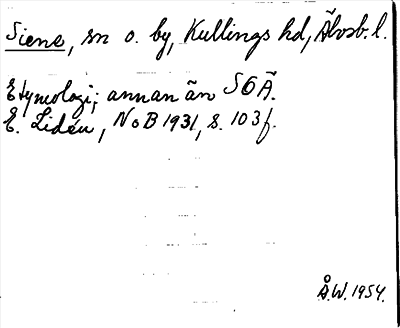 Siene, sn o. by, Kullings hd, Älvsb. l.
Etymologi; annan än SOÄ.
E. Lidén, NoB 1931, s. 103 f.
Å.W. 1954.